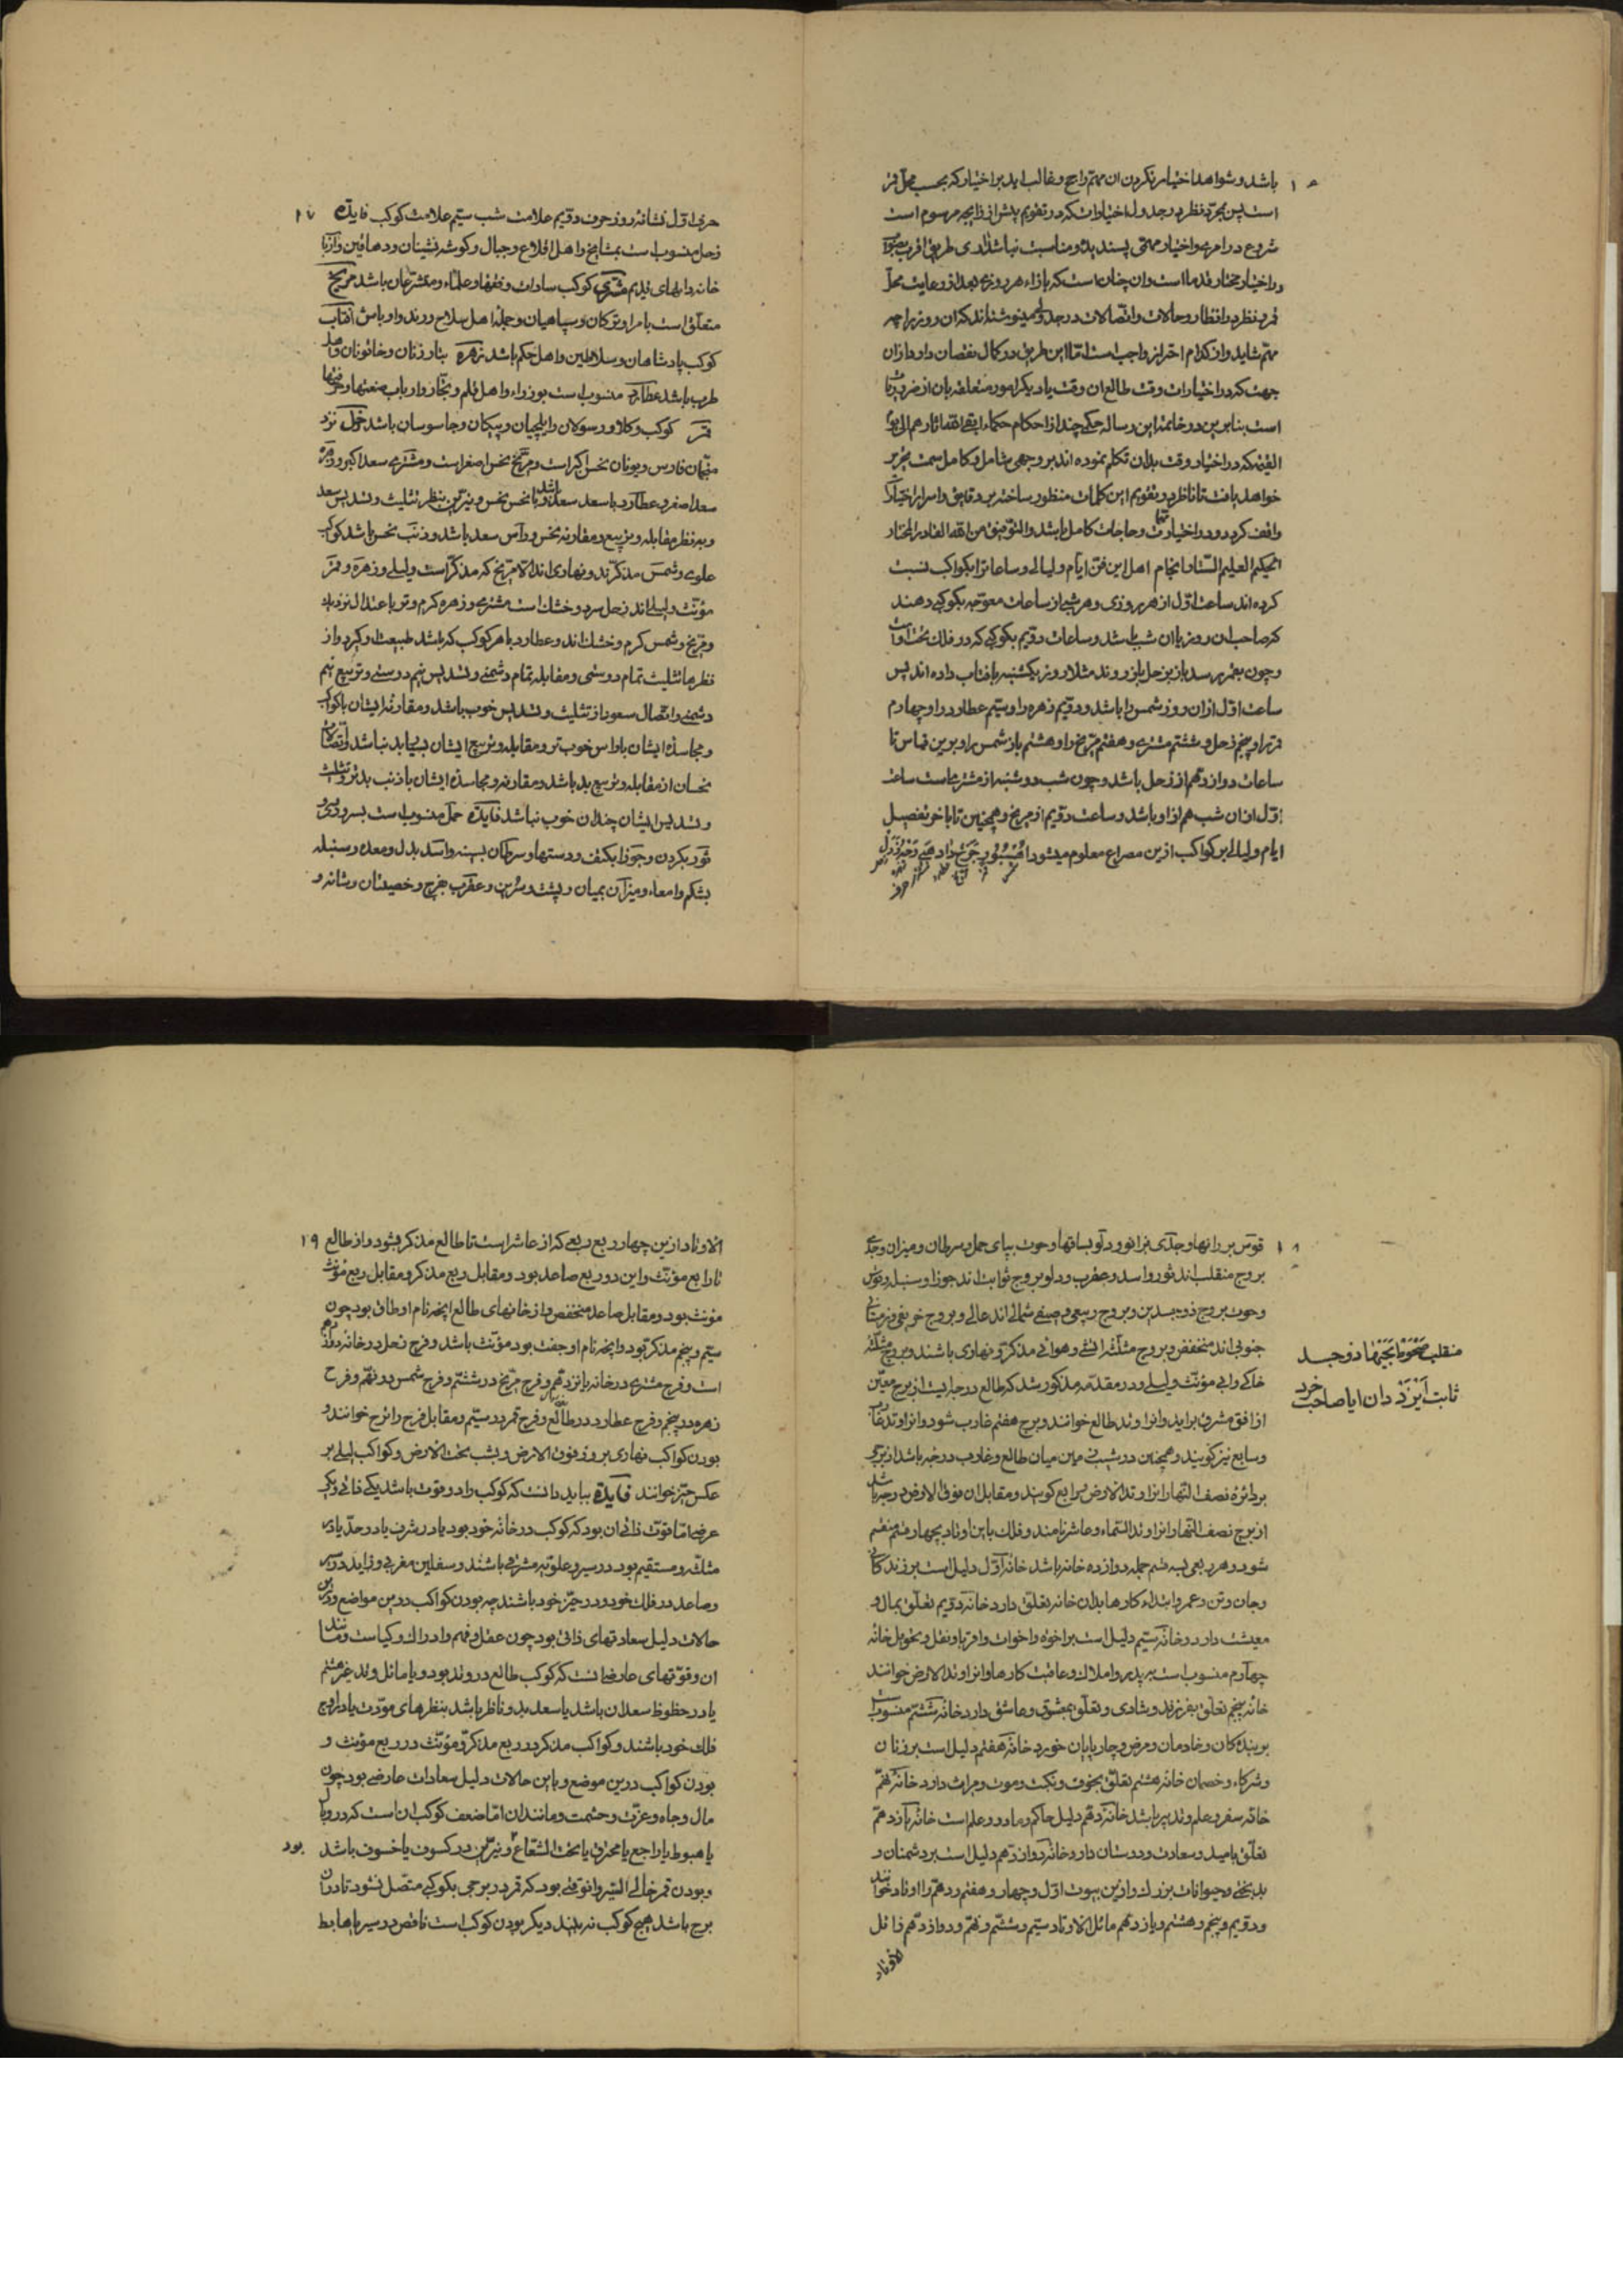 باشد و شواهد اختیار نکردن ان مهم راجح و غالب اید بر اختیار که بحسب محل قمر
است پس بمجرد نظر در جدول اختیارات که در تقویم پیش از زایجه مرسوم است
شروع در امری و اختیار مهمی پسندیده و مناسبت نباشد اری طریق اقرب بصواب
در اختیار مختار قدما است و ان چنان است که بازاء هر روزی بعد از رعایت محل
قمر و نظر در انظار و حالات و اتصالات در جدولی مینوشته اند که ان روز برای چه
مهم شاید و از کدام احتراز واجب است اما این طریق در کمال نقصان دارد از ان
جهت که در اختیارات وقت طالع ان وقت یا دیگر امور متعلقه بان از ضروریات
است بنابرین در خاتمه این رساله حکمی چند از احکام حکماء ابقی الله اثارهم الی یوم
القیمه که در اختیار وقت بدان تکلم نموده اند بر وجهی شامل و کامل سمت تحریر
خواهد یافت تا ناظر در تقویم این کلمات منظور ساخته بر دقایق و اسرار اختیارات
واقف گردد و در اختیار مهمات و حاجات کامل باشد والتوفیق من الله القادر المختار
الحکیم العلیم الستار انجام اهل این فن ایام و لیالی و ساعات را بکواکب نسبت
کرده اند ساعت اول از هر روزی و هر شبی از ساعات معوجه بکوکبی دهند
که صاحب ان روز یا ان شب باشد و ساعات دویم بکوکبی که در فلک تحت اوست
و چون بقمر رسد باز بزحل باز روند مثلا روز یکشنبه بافتاب داده اند پس
ساعت اول ازان روز شمس را باشد و دویم زهره را و سیم عطارد را و چهارم
قمر را و پنجم زحل و ششم مشتری و هفتم مریخ را و هشتم باز شمس را و برین قیاس تا
ساعات دوازدهم از زحل باشد و چون شب دوشنبه از مشتری است ساعت
اول ازان شب هم از او باشد و ساعت دویم از مریخ و همچنین تا باخر تفصیل
ایام و لیالی بر کواکب ازین مصراع معلوم میشود
حرف اول نشانه روز حرف دویم علامت شب سیم علامت کوکب فایده ۱۷
زحل منسوب است بمشایخ و اهل قلاع و جبال و گوشه نشینان و دهاقین و ارباب
خاندانهای قدیم مشتری کوکب سادات و فقها و علماء و متشرعان باشد مریخ
متعلق است بامرا و ترکان و سپاهیان و جمله اهل سلاح و رندو اوباش افتاب
کوکب پادشاهان و سلاطین و اهل حکم باشد زهره بنا زنان و خاتونان و اهل
طرب باشد عطارد منسوب است بوزراء و اهل قلم و تجار و ارباب صنعتها و حرفتها
قمر کوکب وکلا و رسولان و ایلچیان و پیکان و جاسوسان باشد زحل نزد
منجمان فارس و یونان نحس اکبر است و مریخ نحس اصغر است و مشتری سعد اکبر و زهره
سعد اصغر و عطارد با سعد سعد باشد و با نحس نحس و نیرین بنظر تثلیث و تسدیس سعد
و به نظر مقابله و تربیع و مقارنه نحس و راس سعد باشد و ذنب نحس باشد کواکب
علوی و شمس مذکرند و نهاری اند الا مریخ که مذکر است و لیلی و زهره و قمر
مؤنث و لیلی اند زحل سرد و خشک است مشتری و زهره گرم و تر باعتدال نزدیک
و مریخ و شمس گرم و خشک اند و عطارد با هر کوکب که باشد طبیعت او گیرد و از
نظرها تثلیث تمام دوستی و مقابله تمام دشمنی و تسدیس نیم دوستی و تربیع نیم
دشمنی و اتصال سعود از تثلیث و تسدیس خوب باشد و مقارنه ایشان با کواکب
و مجاسده ایشان با راس خوب تر و مقابله و تربیع ایشان بسی بد نباشد و اتصال
نحسان از مقابله و تربیع بد باشد و مقارنه و مجاسده ایشان با ذنب بدتر و تثلیث
و تسدیس ایشان چندان خوب نباشد فایده حمل منسوب است بسر و روی و
ثور بگردن و جوزا بکتف و دستها و سرطان بسینه و اسد بدل و معده و سنبله
بشکم و امعاء و میزان بمیان و پشت و سرین و عقرب بفرج و خصیتان و مثانه و
۱۸ قوس بر رانها و جدی بزانو و دلو بساقها و حوت بپای حمل و سرطان و میزان و جدی
بروج منقلب اند ثور و اسد و عقرب و دلو بروج ثوابت اند جوزا و سنبله و قوس
و حوت بروج ذو جسدین و بروج ربیعی و صیفی شمالی اند عالی و بروج خریفی و زمستانی
جنوبی اند منخفض و بروج مثلثه اتشی و هوائی مذکر و نهاری باشند و بروج مثلثه
خاکی و ابی مؤنث و لیلی و در مقدمه مذکور شد که طالع درجه ایست از برج معین
از افق مشرق براید و انرا وتد طالع خوانند و برج هفتم غارب شود و انرا وتد غارب
و سابع نیز گویند و همچنین در شب میان طالع و غارب درجه باشد از برجی
بر دائره نصف النهار انرا وتد الارض و رابع گویند و مقابل ان فوق الارض درجه باشد
از برج نصف النهار و انرا وتد السماء و عاشر نامند و فلک باین اوتاد بچهار قسم منقسم
شود و هر ربعی بسه قسم جمله دوازده خانه باشد خانه اول دلیل است بر زندگانی
و جان و تن و عمر و ابتداء کارها بدان خانه تعلق دارد خانه دویم تعلق بمال و
معیشت دارد و خانه سیم دلیل است بر اخوه و اخوات و اقربا و نقل و تحویل خانه
چهارم منسوب است بر پدر و املاک و عاقبت کارها و انرا وتد الارض خوانند
خانه پنجم تعلق بفرزند و شادی و تعلق بمعشوق و عاشق دارد خانه ششم منسوب است
بر بندگان و خادمان و مرض و چارپایان خورد خانه هفتم دلیل است بر زنان
و شرکاء و خصمان خانه هشتم تعلق بخوف و نکبت و موت و میراث دارد خانه نهم
خانه سفر و علم و تدبیر باشد خانه دهم دلیل حاکم و مادر و علم است خانه یازدهم
تعلق بامید و سعادت و دوستان دارد خانه دوازدهم دلیل است بر دشمنان و
بدبختی و حیوانات بزرگ و ازین بیوت اول و چهارم و هفتم و دهم را اوتاد خوانند
و دویم و پنجم و هشتم و یازدهم مائل الاوتاد سیم و ششم و نهم و دوازدهم زائل
الاوتاد
منقلب بجنبها ذو جسد
ثابت دان ایا صاحب خرد
الاوتاد ازین چهار ربع ربعی که از عاشر است تا طالع مذکر بود و از طالع ۱۹
تا رابع مؤنث و این دو ربع صاعد بود و مقابل ربع مذکر مذکر و مقابل ربع مؤنث
مؤنث بود و مقابل صاعد منخفض و از خانهای طالع انچه نام او طاق بود چون
سیم و پنجم مذکر بود و انچه نام او جفت بود مؤنث باشد و فرح زحل در خانه دوازدهم
است و فرح مشتری در خانه یازدهم و فرح مریخ در ششم و فرح شمس در نهم و فرح
زهره در پنجم و فرح عطارد در طالع و فرح قمر در سیم و مقابل فرح را ترح خوانند و
بودن کواکب نهاری بروز فوق الارض و بشب تحت الارض و کواکب لیلی بر
عکس حیز خوانند فایده بباید دانست که کوکب را دو قوت باشد یکی ذاتی و دیگر
عرضی اما قوت ذاتی ان بود که کوکب در خانه خود بود یا در شرف یا در حد یا در
مثلثه و مستقیم بود در سیر و علویه مشرقی باشند و سفلیین مغربی و زاید در سیر
و صاعد در فلک خود و در حیز خود باشند چه بودن کواکب درین مواضع و درین
حالات دلیل سعادتهای ذاتی بود چون عقل و فهم و ادراک و کیاست و مانند
ان و قوتهای عارضی انست که کوکب طالع در وتد بود و یا مائل وتد غیر هشتم
یا در حظوظ سعدان باشد یا سعد بدو ناظر باشد بنظرهای مودت یا در اوج
فلک خود باشند و کواکب مذکر در ربع مذکر و مؤنث در ربع مؤنث و
بودن کواکب درین موضع و باین حالات دلیل سعادات عارضی بود چون
مال و جاه و عزت و حشمت و مانند ان اما ضعف کوکب ان است که در وبال
یا هبوط یا راجع یا محترق یا تحت الشعاع و نیرین در کسوف یا خسوف باشد بود
و بودن قمر خالی السیر و انوقتی بود که قمر در برجی بکوکبی متصل نشود تا در ان
برج باشد هیچ کوکب نه بیند دیگر بودن کوکب است ناقص در سیر یا هابط